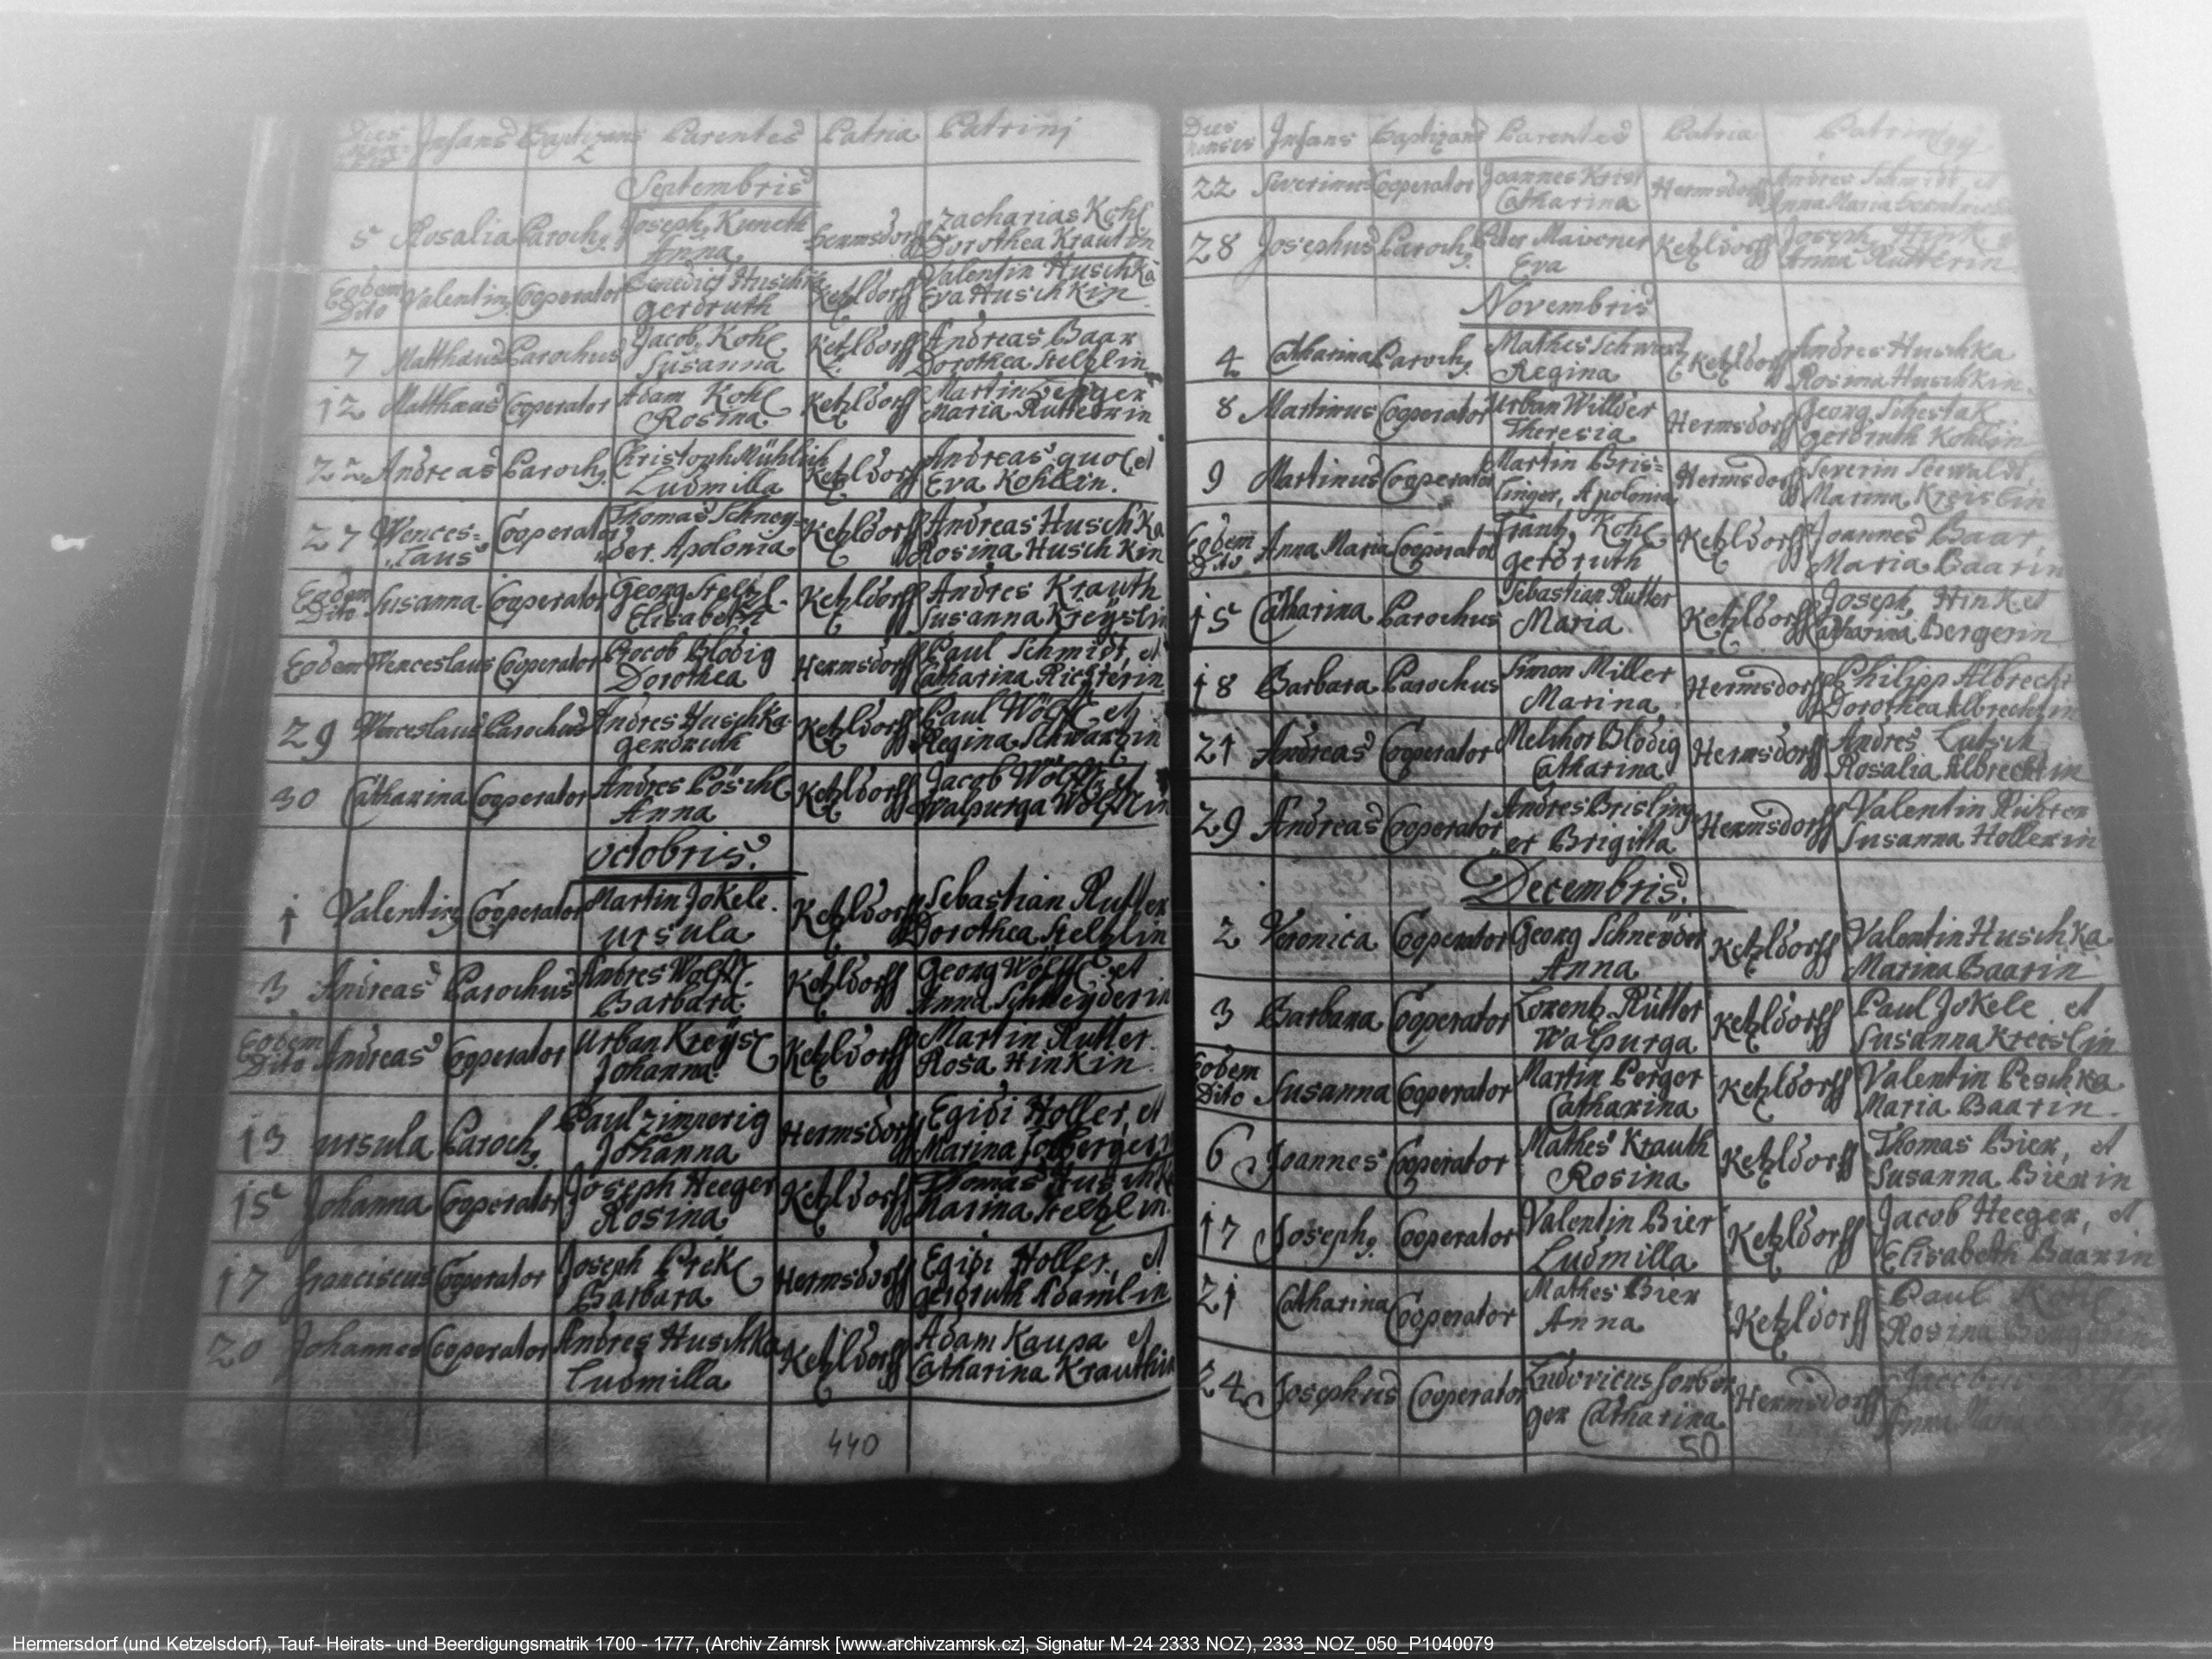 Dies Infans Baptizans Parentes Patria Patrini
Septembris
5 Rosalia Paroch9 Joseph Kuneth Hermsdorff Zacharias Kohl
Anna Dorothea Krautin
Eodem Dito Valentin9 Cooperator Benedict Huschka Ketzldorff Valentin Huschka
gerdruth Eva Huschkin
7 Matthaeus Parochus Jacob Kohl Ketzldorff Andreas Baar
Susanna Dorothea Stelzlin
12 Matthaeus Cooperator Adam Kohl Ketzldorff Martin
Rosina Maria Rutterin
22 Andreas Paroch9 Christoph Mühlich Ketzldorff Andreas et
Ludmilla Eva Kohlin.
27 Wences= Cooperator Thomas Schney= Ketzldorff Andreas Huschka
laus der. Apolonia Rosina Huschkin
Eodem Dito Susanna Cooperator Georg Stelzl Ketzldorff Andres Krauth
Elisabeth Susanna Kreyslin
Eodem Wenceslaus Cooperator Jacob Blodig Hermsdorff Paul Schmidt, et
Dorothea Catharina Richterin
29 Wenceslaus Parochus Andres Huschka Ketzldorff Paul Wölffl et
gerdruth Regina Schwarzin
30 Catharina Cooperator Andres Pöschl Ketzldorff Jacob Wölffl, et
Anna Walpurga Wölfflin
octobris.
1 Valentin9 Cooperator Martin Jokele. Ketzldorff Sebastian Rutter
ursula Dorothea Stelzlin
3 Andreas Parochus Andres Wölffl. Ketzldorff Georg Wölffl et
Barbara Anna Schneyderin
Eodem Dito Andreas Cooperator Urban Kreysl Ketzldorff Martin Rutter
Johanna Rosa Hinkin
13 ursula Paroch9 Paul Zimperig Hermsdorff Egidi Holler, et
Johanna Marina
15 Johanna Cooperator Joseph Heeger Ketzldorff Thomas Huschka
Rosina Marina Stelzlin
17 Franciscus Cooperator Joseph Hermsdorff Egidi Holler, et
Barbara gerdruth Adamlin
20 Johannes Cooperator Andres Huschka Ketzldorff Adam Kaupa et
Ludmilla Catharina Krauthin
440
Dies mensis Infans Baptizans Parentes Patria Patrini
22 Severinus Cooperator Joannes Krist Hermsdorff Andres Schmidt, et
Catharina Anna Maria
28 Josephus Paroch9 Peter Ketzldorff Joseph Hink
Eva Anna Rutterin
Novembris
4 Catharina Paroch9 Mathes Schwartz Ketzldorff Andres Huschka
Regina Rosina Huschkin.
8 Martinus Cooperator Urban Willder Hermsdorff Georg Schestak
Theresia gerdruth Kohlin
9 Martinus Cooperator Martin Bris= Hermsdorff Severin Seewaldt
linger, Apolonia Marina Kreislin
Eodem Dito Anna Maria Cooperator Frantz Kohl Ketzldorff Joannes Baar,
gerdruth Maria Baarin
15 Catharina Parochus Sebastian Rutter Ketzldorff Joseph Hink et
Maria Catharina Bergerin
18 Barbara Parochus Simon Miller Hermsdorff Philipp Albrecht
Marina Dorothea Albrechtin
21 Andreas Cooperator Melchor Blodig Hermsdorff Andres Lutsch
Catharina Rosalia Albrechtin
29 Andreas Cooperator Andres Brisling Hermsdorff Valentin Richter
er Brigitta Susanna Hollerin
Decembris.
2 Veronica Cooperator Georg Schneyder Ketzldorff Valentin Huschka
Anna Marina Baarin
3 Barbara Cooperator Lorentz Rutter Ketzldorff Paul Jokele et
Walpurga Susanna Kreislin
Eodem Dito Susanna Cooperator Martin Perger Ketzldorff Valentin Peschka
Catharina Maria Baarin.
6 Joannes Cooperator Mathes Krauth Ketzldorff Thomas Bier, et
Rosina Susanna Bierin
17 Joseph9 Cooperator Valentin Bier Ketzldorff Jacob Heeger, et
Ludmilla Elisabeth Baarin
21 Catharina Cooperator Mathes Bier Ketzldorff Paul Kohl
Anna Rosina
24 Josephus Cooperator Ludovicus Hermsdorff
ger Catharina Anna Maria
50
Hermersdorf (und Ketzelsdorf), Tauf- Heirats- und Beerdigungsmatrik 1700 - 1777, (Archiv Zámrsk [www.archivzamrsk.cz], Signatur M-24 2333 NOZ), 2333_NOZ_050_P1040079